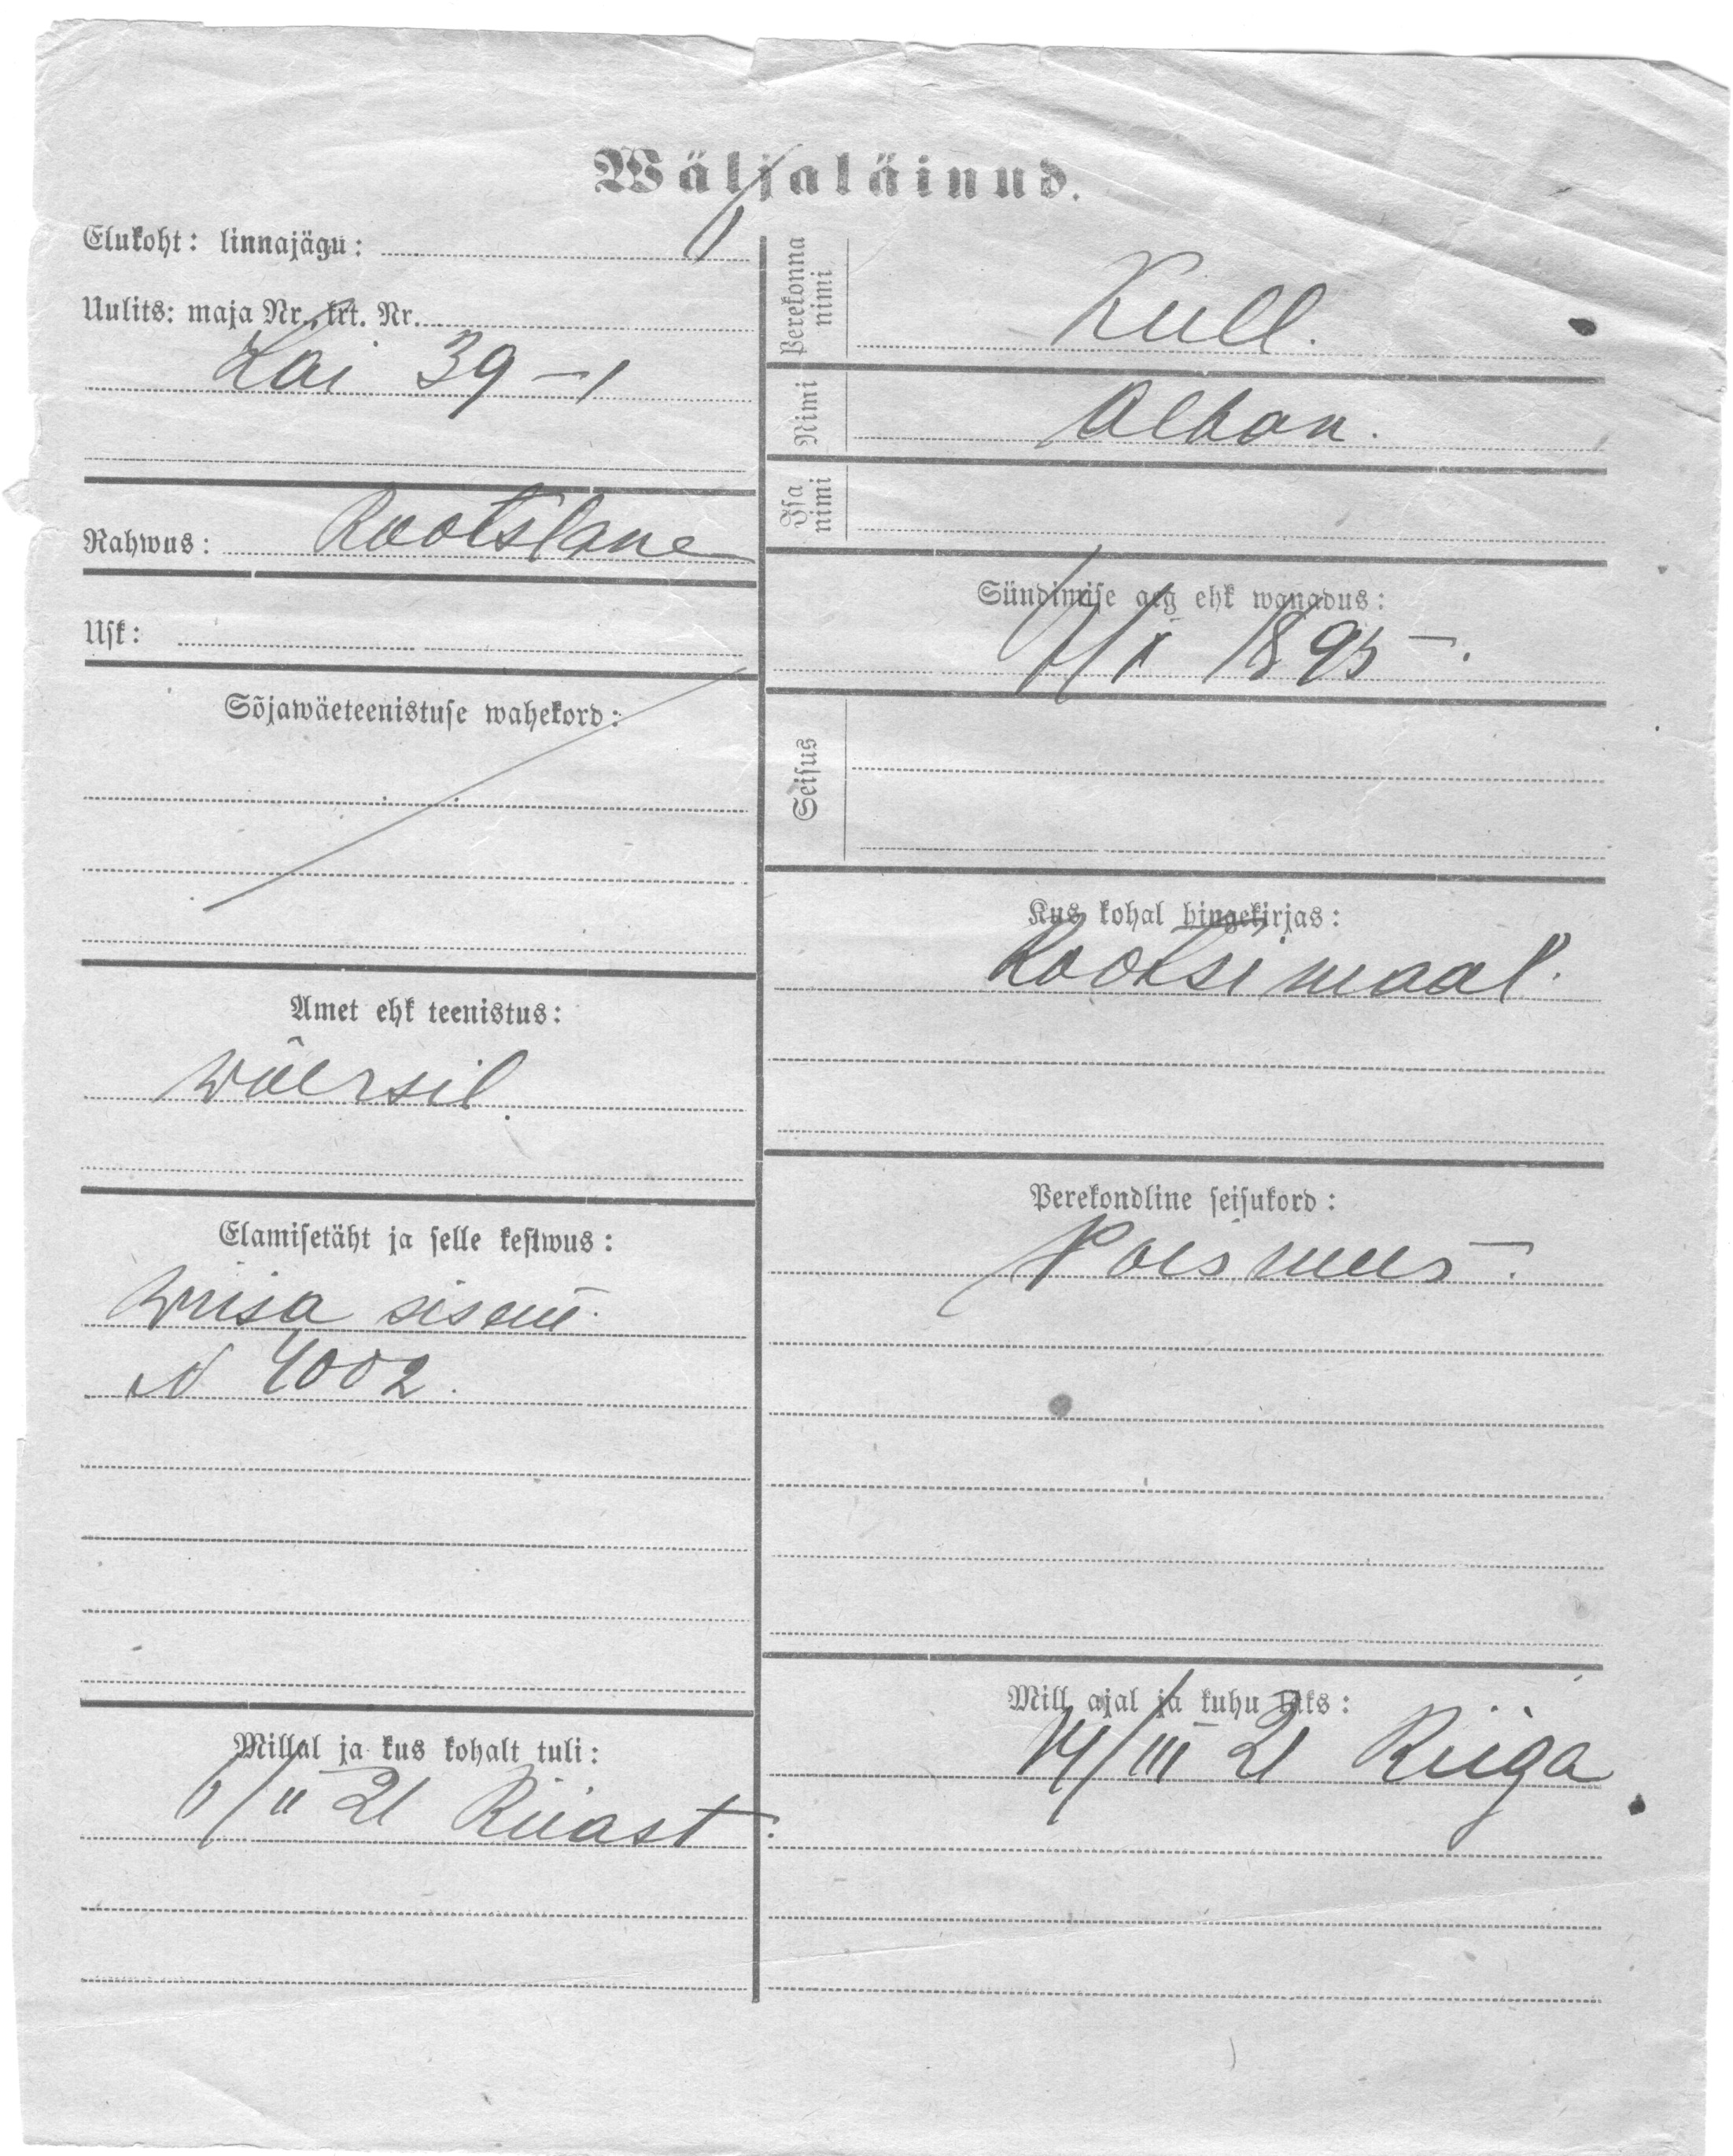 Wäljaläinud.
Elukoht: linnajägu: I
Uulits: maja Nr., krt. Nr.
Lai 39 – 1
Rahwus: Rootslane
Usk:
Sõjawäeteenistuse wahekord:
Amet ehk teenistus:
wõersil.
Elamisetäht ja selle kestwus:
Wiisa
N 4002.
Millal ja kus kohalt tuli:
/II 21 Riiast.
Perekonna nimi
Kull.
Nimi
Isa nimi
Sündimise aeg ehk wanadus:
1895
Seisus
Kus kohal hingekirjas:
Rootsimaal.
Perekondline seisukord:
Poismees.
Mill ajal ja kuhu läks:
14/III 21 Riiga